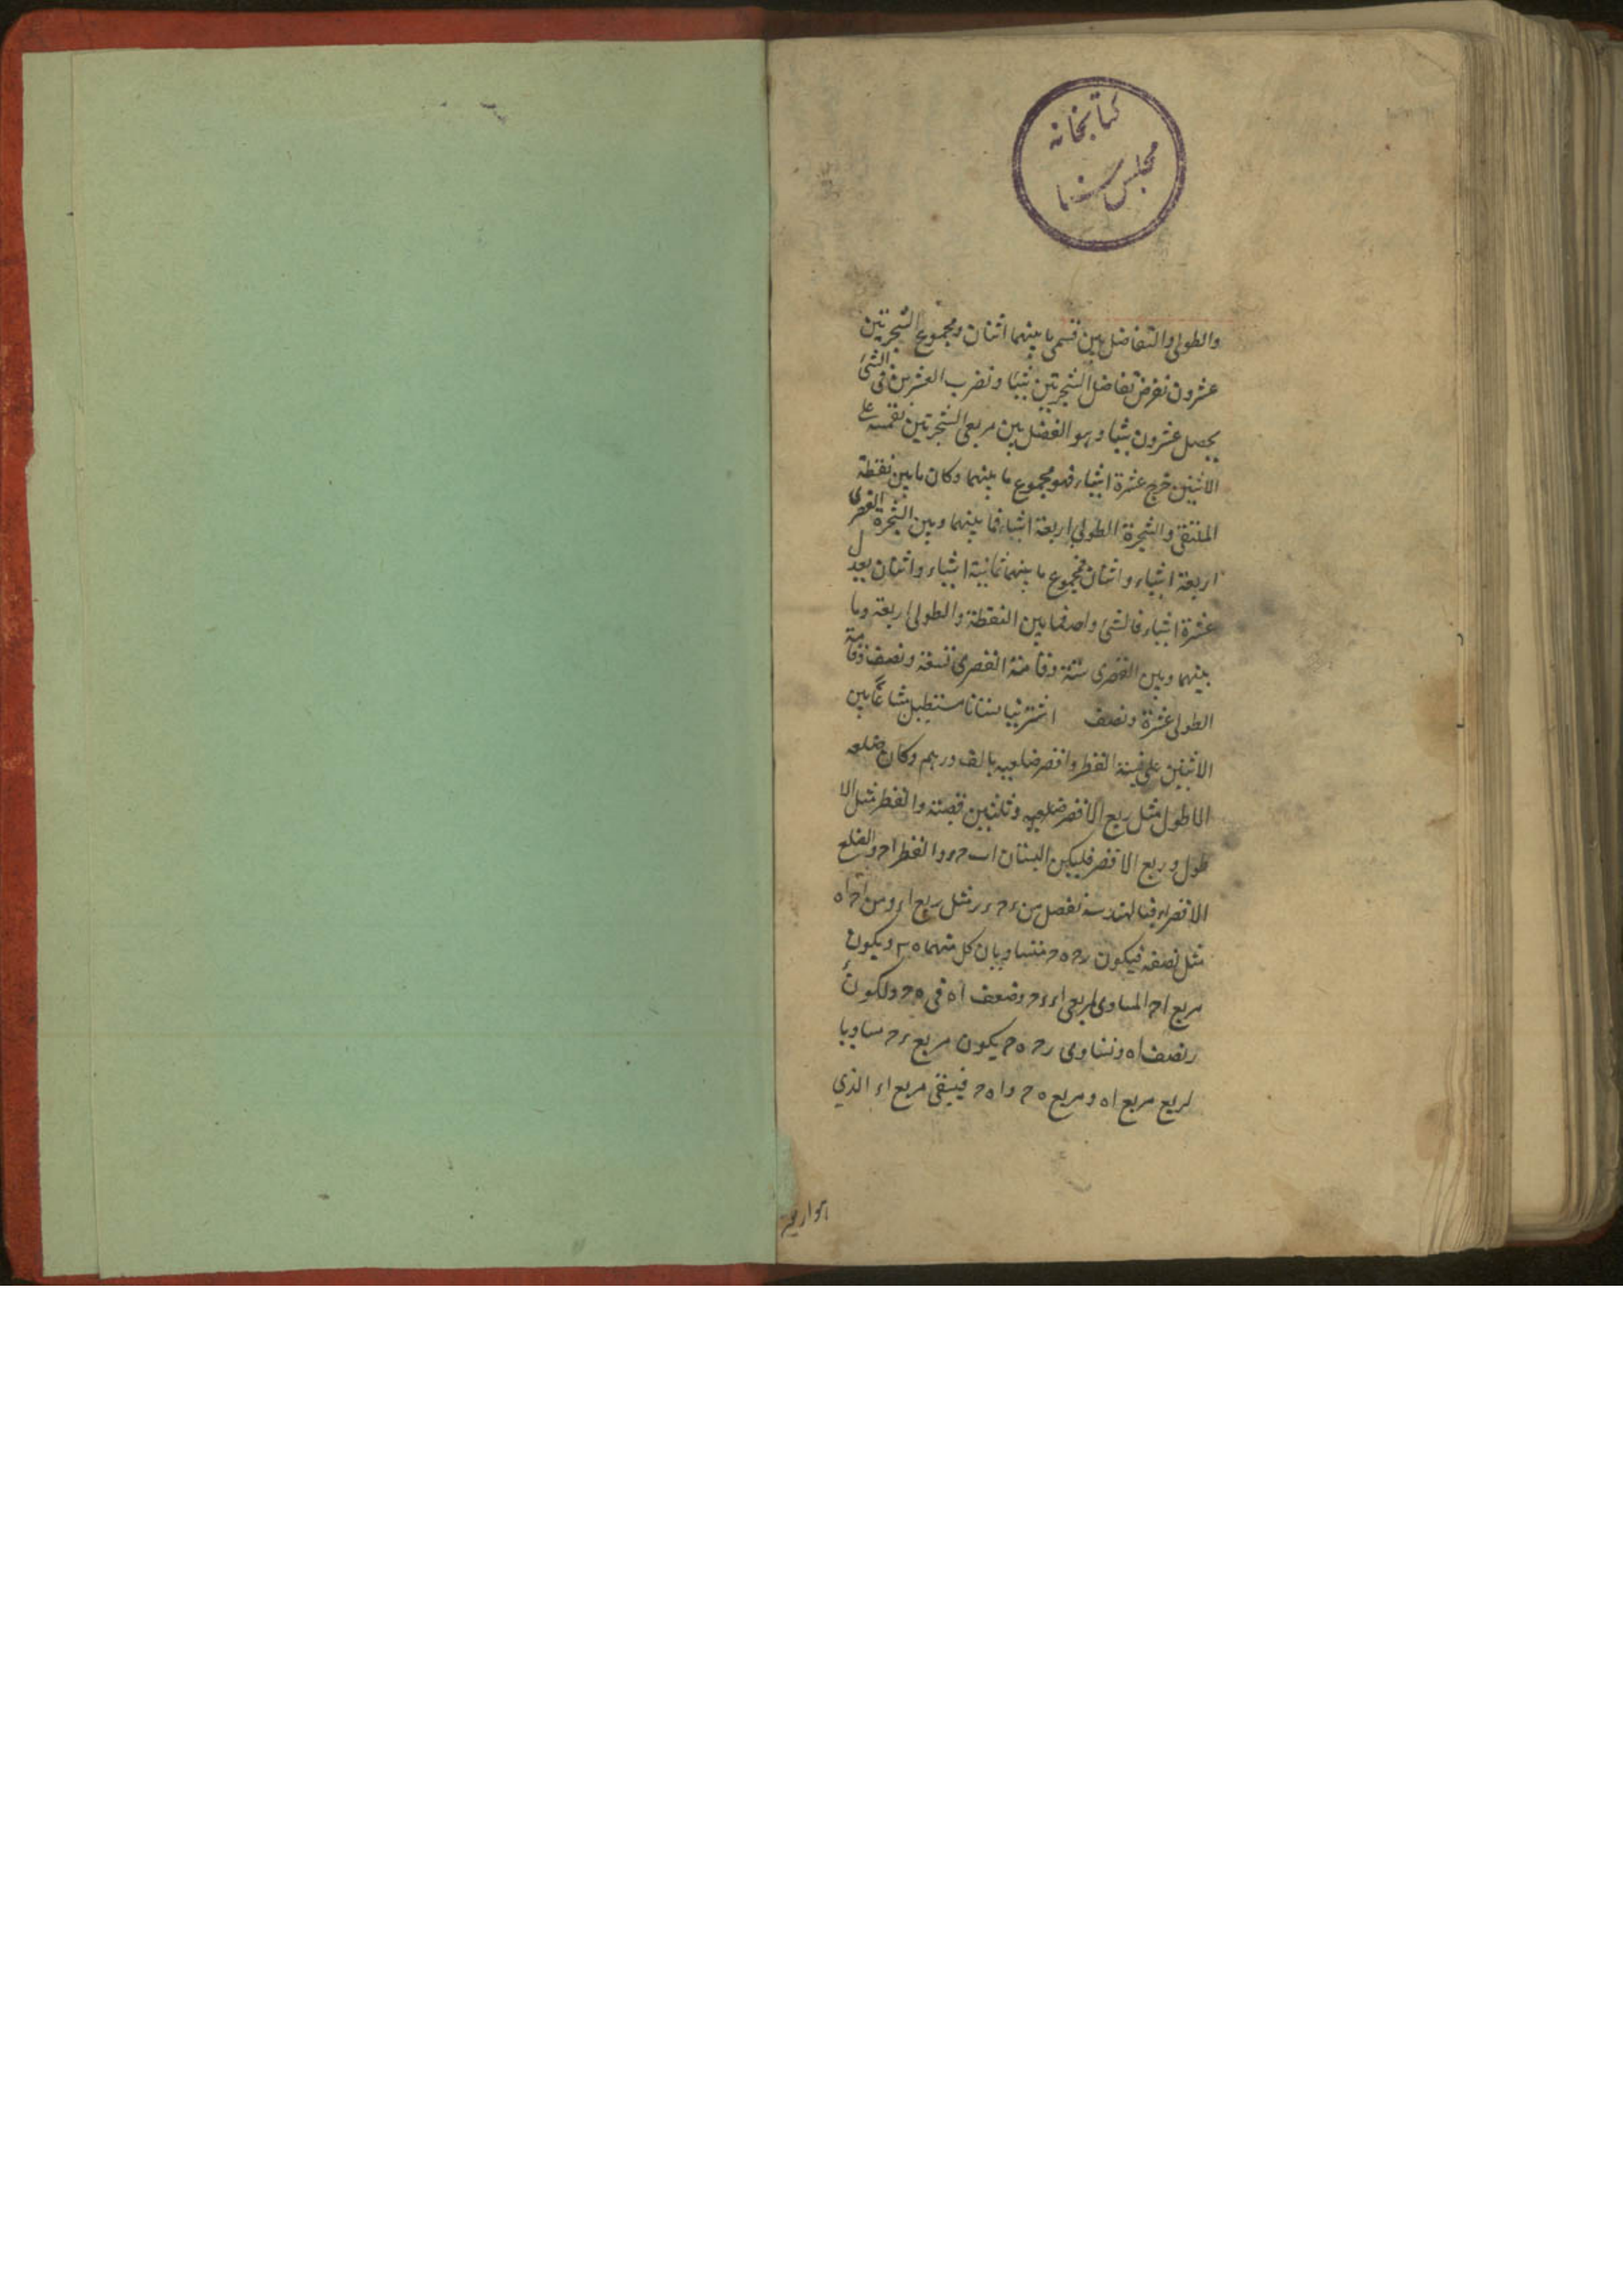 كتابخانه
مجلس سنا
والطولى والتفاضل بين قسمى ما بينهما اثنان ومجموع الشجرتين
عشرون نفرض تفاضل الشجرتين شيئا ونضرب العشرين فى الشئ
يحصل عشرون شيئا وهو الفضل بين مربعى الشجرتين نقسمه على
الاثنين خرج عشرة اشياء فهو مجموع ما بينهما وكان ما بين نقطة
الملتقى والشجرة الطولى اربعة اشياء فما بينهما وبين الشجرة القصرى
اربعة اشياء واثنان فمجموع ما بينهما ثمانية اشياء واثنان يعدل
عشرة اشياء فالشئ واحد فما بين النقطة والطولى اربعة وما
بينهما وبين القصرى ستة وقامة القصرى تسعة ونصف وقامة
الطولى عشرة ونصف اشترينا بستانا مستطيل مشاعا بين
الاثنين على قيمة القطر واقصر ضلعيه بالف درهم وكان ضلعه
الاطول مثل ربع الاقصر ضلعيه وثلثين قصبة والقطر مثل الا
طول وربع الاقصر فليكن البستان اب حء والقطر اح والضلع
الاقصر اء فبالهندسة نفصل من ءح ءر مثل ربع اء ومن اح اه
مثل نصفه فيكون رح هح متساويان كل منهما ٣٠ ويكون
مربع اح المساوى لمربعى اء ءح وضعف اه فى هح ولكون ء
ر نصف اه وتساوى رح هح يكون مربع ءح مساويا
لربع مربع اه ومربع هح واه ح فيبقى مربع اء الذي